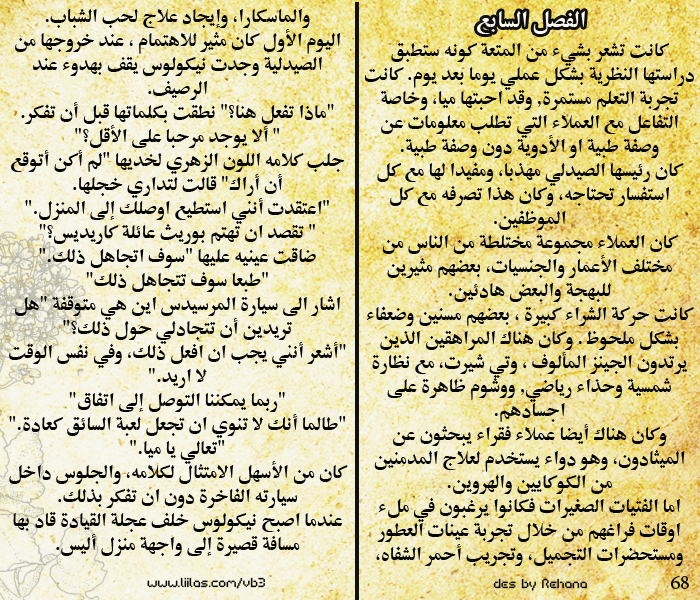 الفصل السابع
كانت تشعر بشيء من المتعة كونه ستطبق
دراستها النظرية بشكل عملي يوما بعد يوم. كانت
تجربة التعلم مستمرة, وقد احبتها ميا، وخاصة
التفاعل مع العملاء التي تطلب معلومات عن
وصفة طبية او الأدوية دون وصفة طبية.
كان رئيسها الصيدلي مهذبا، ومفيدا لها مع كل
استفسار تحتاجه، وكان هذا تصرفه مع كل
الموظفين.
كان العملاء مجموعة مختلطة من الناس من
مختلف الأعمار والجنسيات، بعضهم مثيرين
للبهجة والبعض هادئين.
كانت حركة الشراء كبيرة ، بعضهم مسنين وضعفاء
بشكل ملحوظ . وكان هناك المراهقين الذين
يرتدون الجينز المألوف ، وتي شيرت، مع نظارة
شمسية وحذاء رياضي, ووشوم ظاهرة على
اجسادهم.
وكان هناك أيضا عملاء فقراء يبحثون عن
الميثادون، وهو دواء يستخدم لعلاج المدمنين
من الكوكايين والهروين.
اما الفتيات الصغيرات فكانوا يرغبون في ملء
اوقات فراغهم من خلال تجربة عينات العطور
ومستحضرات التجميل، وتجريب أحمر الشفاه،
68
des by Rehana
والماسكارا، وإيجاد علاج لحب الشباب.
اليوم الأول كان مثير للاهتمام ، عند خروجها من
الصيدلية وجدت نيكولوس يقف بهدوء عند
الرصيف.
"ماذا تفعل هنا؟" نطقت بكلماتها قبل أن تفكر.
" ألا يوجد مرحبا على الأقل؟"
جلب كلامه اللون الزهري لخديها "لم أكن أتوقع
أن أراك" قالت لتداري خجلها.
"اعتقدت أنني استطيع اوصلك إلى المنزل."
" تقصد ان تهتم بوريث عائلة كاريديس؟"
ضاقت عينيه عليها "سوف اتجاهل ذلك."
"طبعا سوف تتجاهل ذلك"
اشار الى سيارة المرسيدس اين هي متوقفة "هل
تريدين أن تتجادلي حول ذلك؟"
"أشعر أنني يجب ان افعل ذلك، وفي نفس الوقت
لا اريد."
"ربما يمكننا التوصل إلى اتفاق"
"طالما أنك لا تنوي ان تجعل لعبة السائق كعادة."
"تعالي يا ميا."
كان من الأسهل الامتثال لكلامه، والجلوس داخل
سيارته الفاخرة دون ان تفكر بذلك.
عندما اصبح نيكولوس خلف عجلة القيادة قاد بها
مسافة قصيرة إلى واجهة منزل أليس.
www.liilas.com/vb3